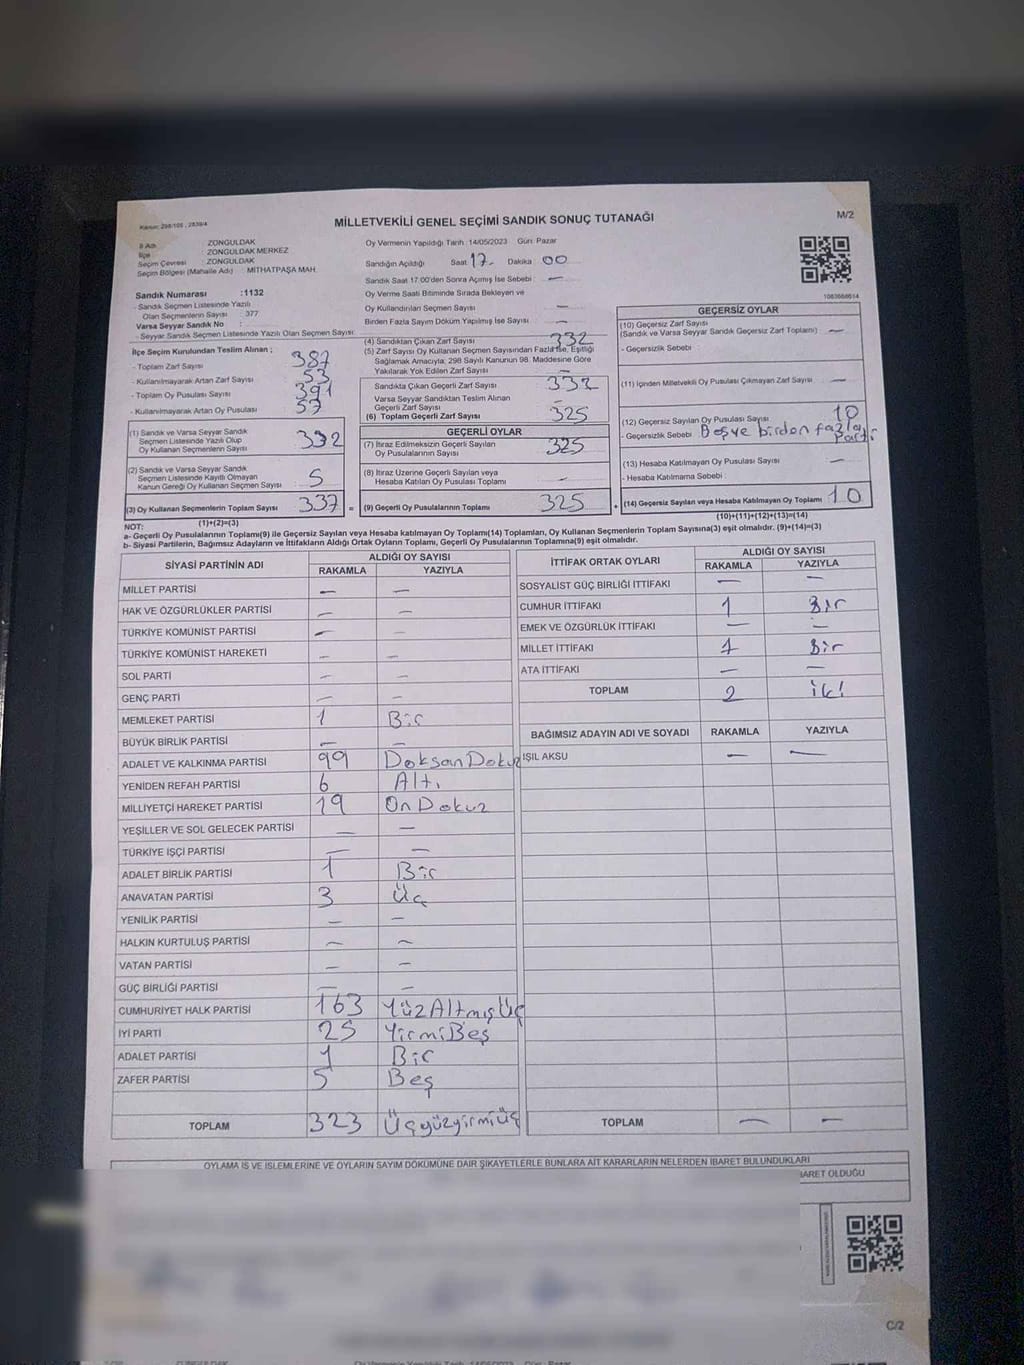 Kanun: 298/105 , 2839/4
MİLLETVEKİLİ GENEL SEÇİMİ SANDIK SONUÇ TUTANAĞI
M/2
İl Adı : ZONGULDAK
İlçe : ZONGULDAK MERKEZ
Seçim Çevresi : ZONGULDAK
Seçim Bölgesi (Mahalle Adı) : MİTHATPAŞA MAH.
Sandık Numarası :1132
Sandık Seçmen Listesinde Yazılı
Olan Seçmenlerin Sayısı : 377
Varsa Seyyar Sandık No :
- Seyyar Sandık Seçmen Listesinde Yazılı Olan Seçmen Sayısı:
İlçe Seçim Kurulundan Teslim Alınan ;
- Toplam Zarf Sayısı 387
- Kullanılmayarak Artan Zarf Sayısı 53
- Toplam Oy Pusulası Sayısı 391
- Kullanılmayarak Artan Oy Pusulası 57
(1) Sandık ve Varsa Seyyar Sandık
Seçmen Listesinde Yazılı Olup
Oy Kullanan Seçmenlerin Sayısı 332
(2) Sandık ve Varsa Seyyar Sandık
Seçmen Listesinde Kayıtlı Olmayan
Kanun Gereği Oy Kullanan Seçmen Sayısı 5
(3) Oy Kullanan Seçmenlerin Toplam Sayısı 337 =
(1)+(2)=(3)
Oy Vermenin Yapıldığı Tarih :14/05/2023 Gün: Pazar
Sandığın Açıldığı Saat 17 Dakika 00
Sandık Saat 17.00'den Sonra Açılmış İse Sebebi : —
Oy Verme Saati Bitiminde Sırada Bekleyen ve
Oy Kullandırılan Seçmen Sayısı —
Birden Fazla Sayım Döküm Yapılmış İse Sayısı : —
(4) Sandıktan Çıkan Zarf Sayısı 332
(5) Zarf Sayısı Oy Kullanan Seçmen Sayısından Fazla İse, Eşitliği
Sağlamak Amacıyla; 298 Sayılı Kanunun 98. Maddesine Göre
Yakılarak Yok Edilen Zarf Sayısı —
Sandıkta Çıkan Geçerli Zarf Sayısı 332
Varsa Seyyar Sandıktan Teslim Alınan
Geçerli Zarf Sayısı —
(6) Toplam Geçerli Zarf Sayısı 325
GEÇERLİ OYLAR
(7) İtiraz Edilmeksizin Geçerli Sayılan
Oy Pusulalarının Sayısı 325
(8) İtiraz Üzerine Geçerli Sayılan veya
Hesaba Katılan Oy Pusulası Toplamı —
(9) Geçerli Oy Pusulalarının Toplamı 325 +
1083668614
GEÇERSİZ OYLAR
(10) Geçersiz Zarf Sayısı
(Sandık ve Varsa Seyyar Sandık Geçersiz Zarf Toplamı) —
- Geçersizlik Sebebi :
(11) İçinden Milletvekili Oy Pusulası Çıkmayan Zarf Sayısı —
(12) Geçersiz Sayılan Oy Pusulası Sayısı 10
- Geçersizlik Sebebi Boş ve birden fazla
Parti
(13) Hesaba Katılmayan Oy Pusulası Sayısı —
- Hesaba Katılmama Sebebi :
(14) Geçersiz Sayılan veya Hesaba Katılmayan Oy Toplamı 10
(10)+(11)+(12)+(13)=(14)
NOT:
a- Geçerli Oy Pusulasının Toplamı(9) ile Geçersiz Sayılan veya Hesaba katılmayan Oy Toplamı(14) Toplamları, Oy Kullanan Seçmenlerin Toplam Sayısına(3) eşit olmalıdır. (9)+(14)=(3)
b- Siyasi Partilerin, Bağımsız Adayların ve İttifakların Aldığı Ortak Oyların Toplamı, Geçerli Oy Pusulalarının Toplamına(9) eşit olmalıdır.
SİYASİ PARTİNİN ADI
ALDIĞI OY SAYISI
RAKAMLA YAZIYLA
MİLLET PARTİSİ — —
HAK VE ÖZGÜRLÜKLER PARTİSİ — —
TÜRKİYE KOMÜNİST PARTİSİ — —
TÜRKİYE KOMÜNİST HAREKETİ — —
SOL PARTİ — —
GENÇ PARTİ — —
MEMLEKET PARTİSİ 1 Bir
BÜYÜK BİRLİK PARTİSİ — —
ADALET VE KALKINMA PARTİSİ 99 DoksanDokuz
YENİDEN REFAH PARTİSİ 6 Altı
MİLLİYETÇİ HAREKET PARTİSİ 19 OnDokuz
YEŞİLLER VE SOL GELECEK PARTİSİ — —
TÜRKİYE İŞÇİ PARTİSİ — —
ADALET BİRLİK PARTİSİ 1 Bir
ANAVATAN PARTİSİ 3 Üç
YENİLİK PARTİSİ — —
HALKIN KURTULUŞ PARTİSİ — —
VATAN PARTİSİ — —
GÜÇ BİRLİĞİ PARTİSİ — —
CUMHURİYET HALK PARTİSİ 163 YüzAltmışÜç
İYİ PARTİ 25 YirmiBeş
ADALET PARTİSİ 1 Bir
ZAFER PARTİSİ 5 Beş
TOPLAM 323 Üçyüzyirmiüç
İTTİFAK ORTAK OYLARI
ALDIĞI OY SAYISI
RAKAMLA YAZIYLA
SOSYALİST GÜÇ BİRLİĞİ İTTİFAKI — —
CUMHUR İTTİFAKI 1 Bir
EMEK VE ÖZGÜRLÜK İTTİFAKI — —
MİLLET İTTİFAKI 1 Bir
ATA İTTİFAKI — —
TOPLAM 2 iki
BAĞIMSIZ ADAYIN ADI VE SOYADI RAKAMLA YAZIYLA
IŞIL AKSU — —
TOPLAM — —
OYLAMA İŞ VE İŞLEMLERİNE VE OYLARIN SAYIM DÖKÜMÜNE DAİR ŞİKAYETLERLE BUNLARA AİT KARARLARIN NELERDEN İBARET BULUNDUKLARI
İBARET OLDUĞU
C/2